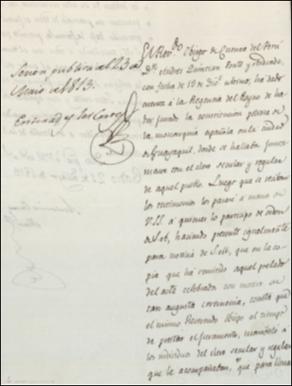 Sesion publica del 13 de
Mayo de 1813.
Enterado y las Cortes
El Rev.do Obispo de Cuenca del Perú
Dn. Andres Quintian Ponte y Andrade,
con fecha de 19 de Dic.e ultimo, ha dado
cuenta a la Regencia del Reyno de haber
jurado la constitucion politica de
la monarquia española en la ciudad
de Guayaquil, donde se hallaba juntamente
con el clero secular y regular
de aquel pueblo. Luego que se reciban
los testimonios los pasaré a manos de
V.SS. a quienes lo participo de orden
de S.A., haciendo presente igualmente
para noticia de S.M., que en la copia
que ha remitido aquel prelado
del acto celebrado con motivo de
tan augusta ceremonia, consta que
el mismo Reverendo Obispo al tiempo
de prestar el juramento, manifestó a
los individuos del clero secular y regular
que le acompañaban, que para